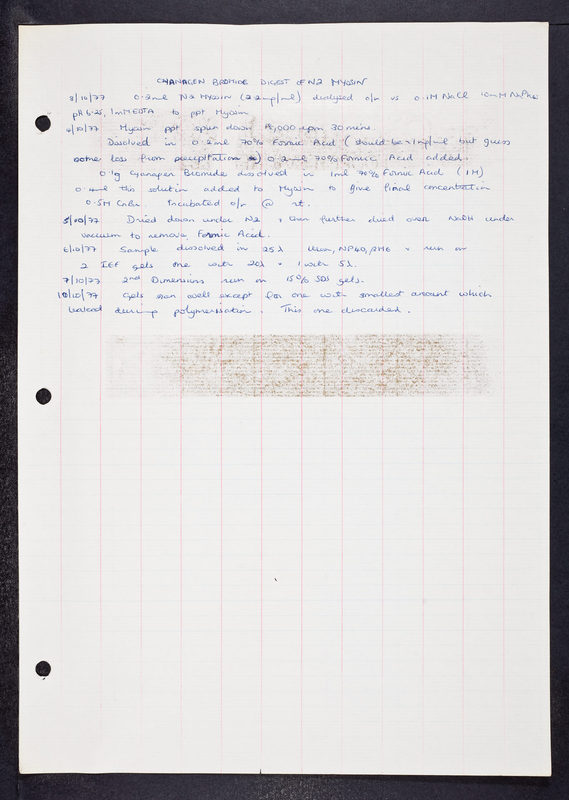 CYANAGEN BROMIDE DIGEST OF N2 MYOSIN
3/10/77 0.2ml N2 Myosin (2.2mg/ml) dialysed o/n vs 0.1M NaCl 10mM NaPO4
pH 6.25, 1mM EDTA to ppt Myosin
4/10/77 Myosin ppt spun down 18,000 rpm 30 mins.
Dissolved in 0.2ml 70% Formic Acid (should be ~1mg/ml but guess
less from precipitation) 0.2ml 70% Formic Acid added.
0.1g Cyanagen Bromide dissolved in 1ml 70% Formic Acid (1M)
0.4ml this solution added to Myosin to give final concentration
0.5M CnBr. Incubated o/n @ rt.
5/10/77 Dried down under N2 & then further dried over NaOH under
vacuum to remove Formic Acid.
6/10/77 Sample dissolved in 25λ Urea, NP40, βME & run on
2 IEF gels one with 20λ & 1 with 5λ.
7/10/77 2nd Dimensions run on 15% SDS gels.
10/10/77 Gels ran well except for one with smallest amount which
leaked during polymerisation. This one discarded.